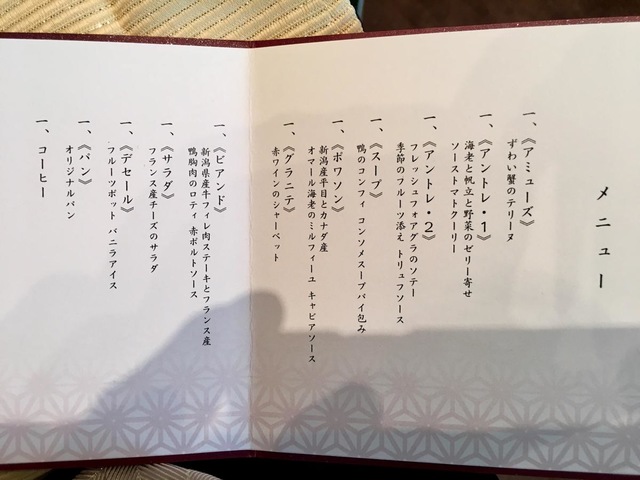 メニュー
一、《アミューズ》
ずわい蟹のテリーヌ
一、《アントレ・1》
海老と帆立と野菜のゼリー寄せ
ソーストマトクーリー
一、《アントレ・2》
フレッシュフォアグラのソテー
季節のフルーツ添え トリュフソース
一、《スープ》
鴨のコンフィ コンソメスープパイ包み
一、《ポワソン》
新潟県産平目とカナダ産
オマール海老のミルフィーユ キャビアソース
一、《グラニテ》
赤ワインのシャーベット
一、《ビアンド》
新潟県産牛フィレ肉ステーキとフランス産
鴨胸肉のロティ 赤ポルトソース
一、《サラダ》
フランス産チーズのサラダ
一、《デセール》
フルーツポット バニラアイス
一、《パン》
オリジナルパン
一、コーヒー